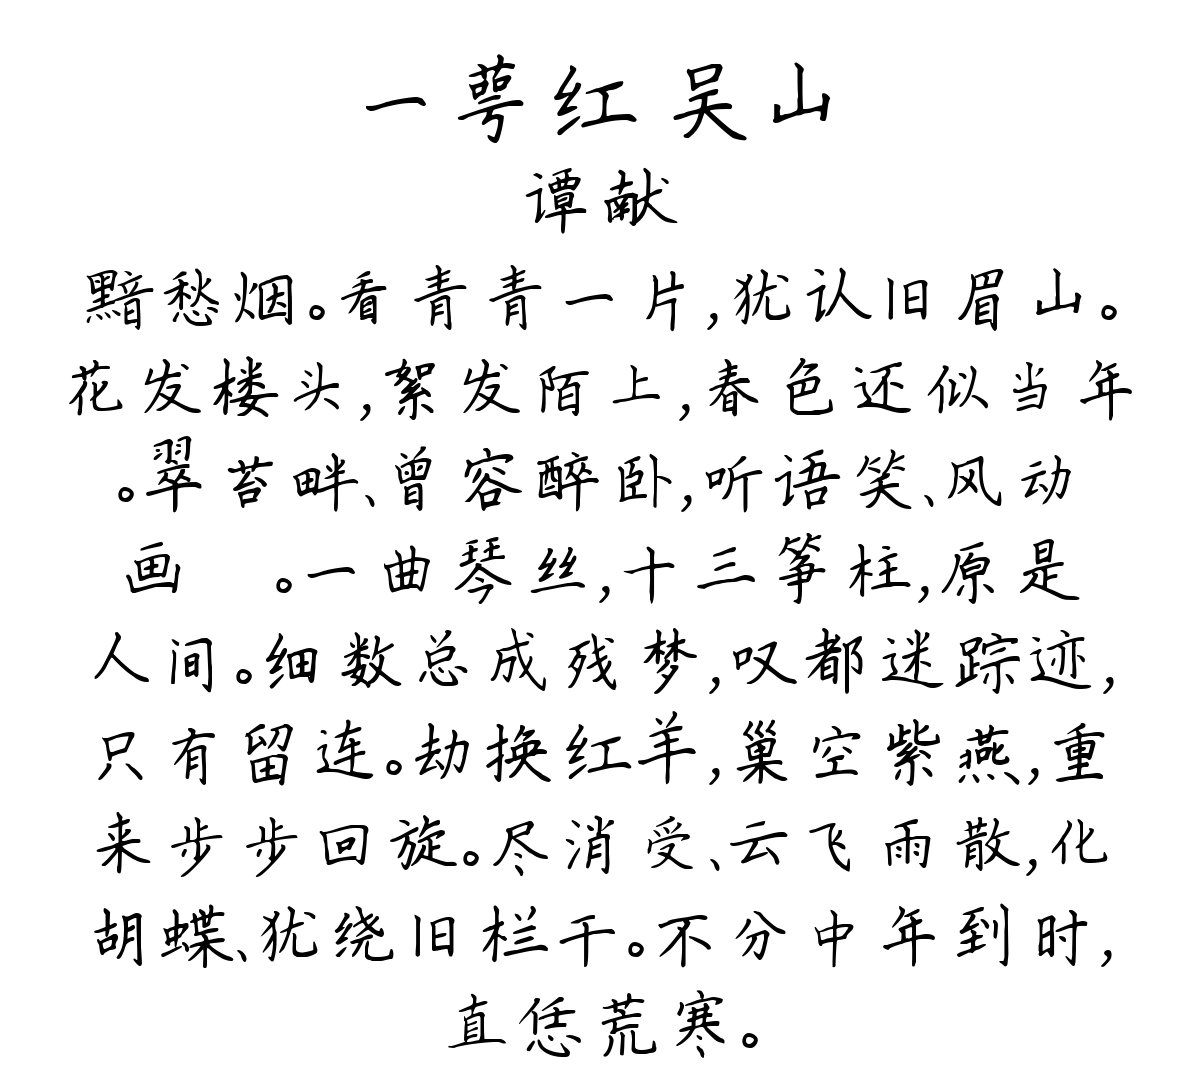 一萼红 吴山
谭献
黯愁烟。看青青一片,犹认旧眉山。
花发楼头,絮发陌上,春色还似当年
。翠苔畔、曾容醉卧,听语笑、风动
画 。一曲琴丝,十三筝柱,原是
人间。细数总成残梦,叹都迷踪迹,
只有留连。劫换红羊,巢空紫燕,重
来步步回旋。尽消受、云飞雨散,化
胡蝶、犹绕旧栏干。不分中年到时,
直恁荒寒。